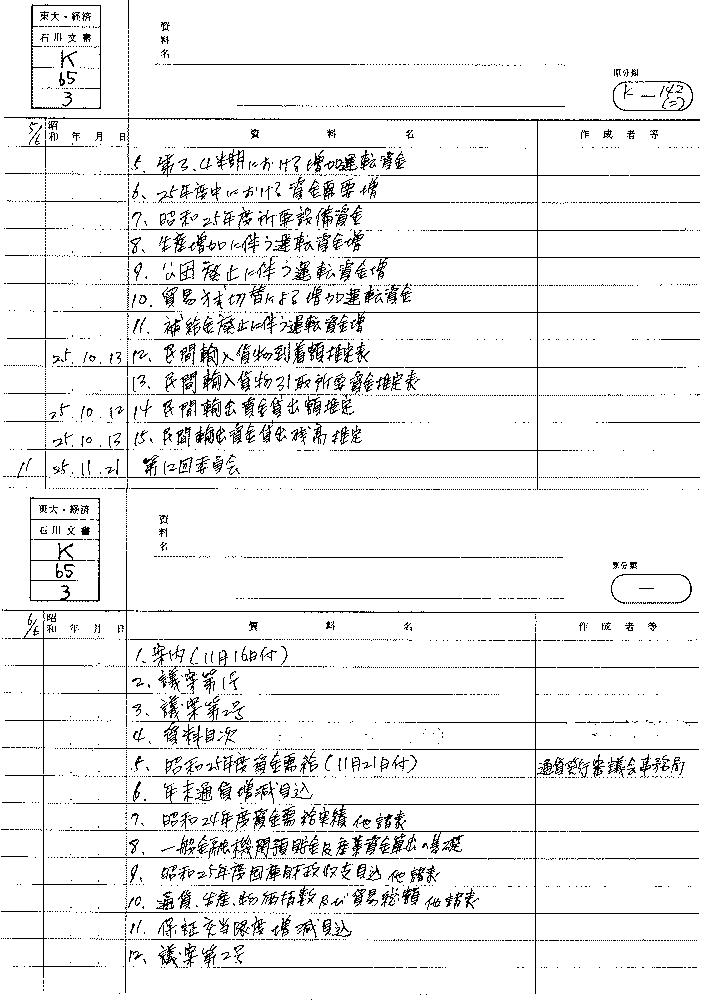 東大・経済
石川文書
K
65
3
資料名
原分類
K-142
(二)
5/6 昭和 年 月 日 資料名 作成者等
5. 第3.4半期における増加運転資金
6. 25年度中における資金需要増
7. 昭和25年度所要設備資金
8. 生産増加に伴う運転資金増
9. 公団廃止に伴う運転資金増
10. 貿易方式切替による増加運転資金
11. 補給金廃止に伴う運転資金増
25.10.13 12. 民間輸入貨物到着額推定表
13. 民間輸入貨物引取所要資金推定表
25.10.12 14 民間輸出資金貸出額推定
25.10.13 15. 民間輸出資金貸出残高推定
11 25.11.21 第12回委員会
東大・経済
石川文書
K
65
3
資料名
原分類
—
6/6 昭和 年 月 日 資料名 作成者等
1. 案内(11月16日付)
2. 議案第1号
3. 議案第2号
4. 資料目次
5. 昭和25年度資金需給(11月21日付) 通貨発行審議会事務局
6. 年末通貨増減見込
7. 昭和24年度資金需給実績 他諸表
8. 一般金融機関預貯金及産業資金算出の基礎
9. 昭和25年度国庫財政収支見込 他諸表
10. 通貨、生産、物価指数及び貿易総額 他諸表
11. 保証充当限度増減見込
12. 議案第2号